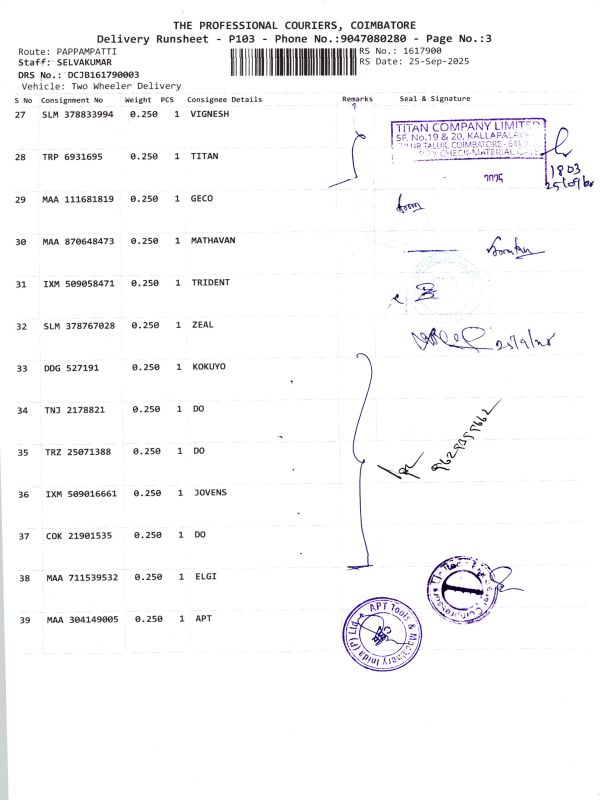 THE PROFESSIONAL COURIERS, COIMBATORE
Delivery Runsheet - P103 - Phone No.:9047080280 - Page No.:3
Route: PAPPAMPATTI RS No.: 1617900
Staff: SELVAKUMAR RS Date: 25-Sep-2025
DRS No.: DCJB161790003
Vehicle: Two Wheeler Delivery
S No Consignment No Weight PCS Consignee Details Remarks Seal & Signature
27 SLM 378833994 0.250 1 VIGNESH
TITAN COMPANY LIMITED
SF. No.19 & 20, KALLAPALAYAM
TALUK, COIMBATORE - 641
CHECK-MATERIAL
28 TRP 6931695 0.250 1 TITAN
1803
2025
29 MAA 111681819 0.250 1 GECO
30 MAA 870648473 0.250 1 MATHAVAN
31 IXM 509058471 0.250 1 TRIDENT
32 SLM 378767028 0.250 1 ZEAL
25/9/25
33 DDG 527191 0.250 1 KOKUYO
34 TNJ 2178821 0.250 1 DO
35 TRZ 25071388 0.250 1 DO
36 IXM 509016661 0.250 1 JOVENS
37 COK 21901535 0.250 1 DO
38 MAA 711539532 0.250 1 ELGI
39 MAA 304149005 0.250 1 APT
APT Tools & Machinery India (P) Ltd